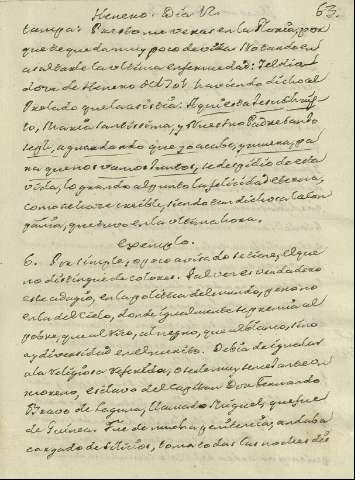 Henero. Dia 12. 63.
tumpa: Presto me veras en la Gloria, por
que te queda muy poco de vida. Notando en
saltarle la ultima enfermedad: Y el dia
doze de Henero de 1701 haviendo dicho al
Prelado que la asistia: Aqui està Jesu Chris-
to, Maria Santissima, y Nuestro Padre Santo
aguardando que yo acabe, y muera, pa
ra que nos vamos juntos, se despidiò de esta
vida, logrando al punto la felicidad eterna,
como se haze creible, siendo tan dichosa la com
pañia, que tuvo en la ultima hora.
Exemplo.
6. Por simple, o poco avisado se tiene, el que
no distingue de colores. Tal vez es verdadero
este adagio, en la politica del mundo, pero no
en la del Cielo, donde igualmente se premia al
pobre, que al rico, al negro, que al blanco, sino
ay diversidad en el merito. Debia de igualar
a la religiosa referida, o ser muy semejante un
moreno, esclavo del Capitan Don Fernando
Bravo de Laguna, llamado Miguel, que fue
de Guinea. Fue de mucha penitencia, andaba
cargado de silicios, tomaba todas las noches dis